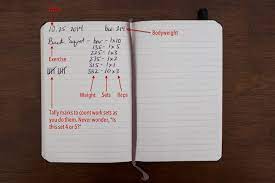 Date
10.25.2014
Bodyweight
Squat - bar - 1x10
135 - 1x5
225 - 1x3
Exercise
315 - 1x1
10x3
Weight Sets Reps
Tally marks to count work sets as
you do them. Never wonder, "Is
this set 4 or 5?"